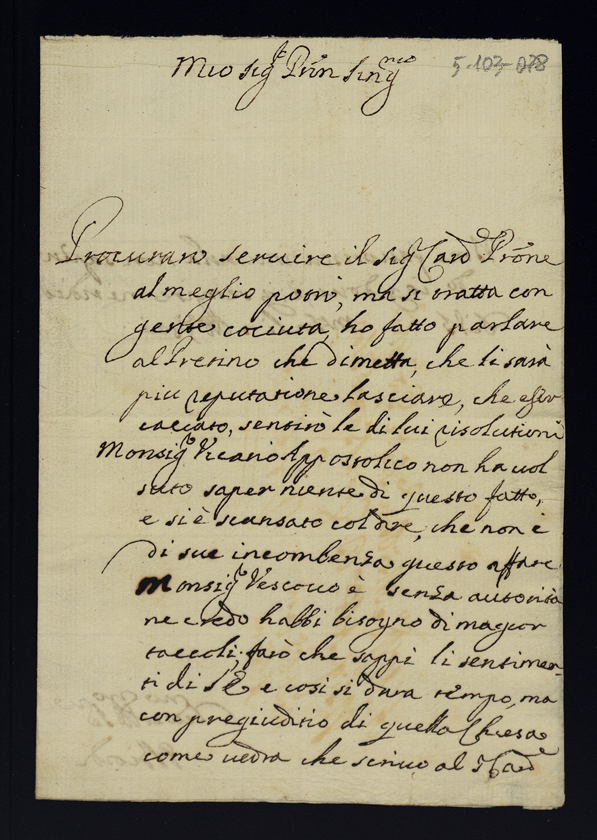 Mio Sig.r Prn Sing.mo
5-103-078
Procuraro servire il Sig Card Prone
al meglio potrò, ma si tratta con
gente cociuta, ho fatto parlare
al Pretino che dimetta, che li sarà
piu reputatione lasciare, che esser
cacciato, sentirò le di lui risolutioni
Monsig.r Vicario Appostolico non ha vol
suto saper niente di questo fatto,
e si è scansato col dire, che non è
di sue incombenza questo affare
Monsig.r Vescovo è senza autorità
ne credo habbi bisogno di magior
taccoli, farò che sappi li sentimen-
ti di SE e cosi si darà tempo, ma
con pregiuditio di quella Chiesa
come vedrà che scrivo al Card